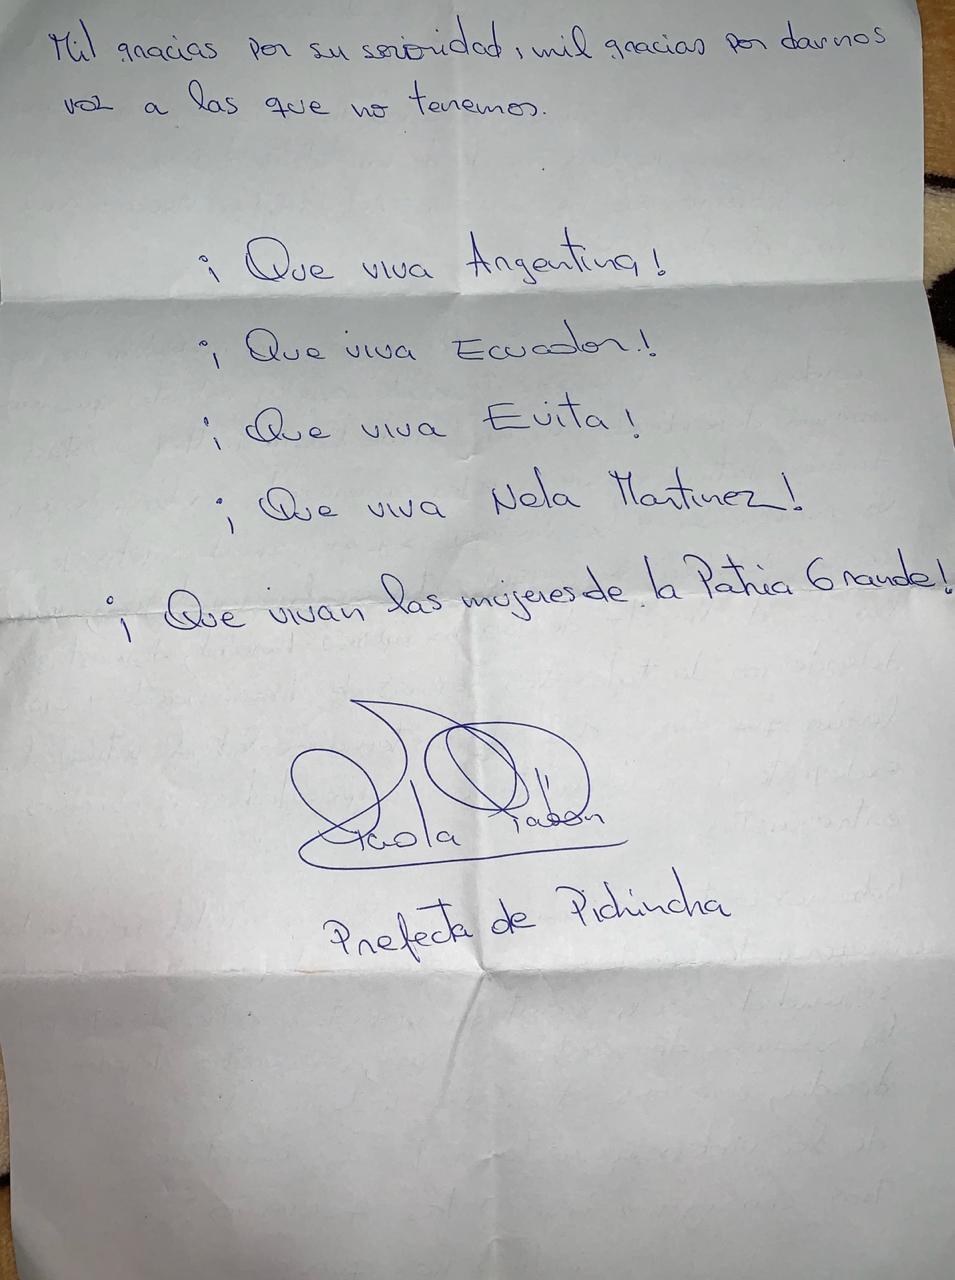 Mil gracias por su sororidad, mil gracias por darnos
voz a las que no tenemos.
¡Que viva Argentina!
¡Que viva Ecuador!
¡Que viva Evita!
¡Que viva Nela Martinez!
¡Que vivan las mujeres de la Patria Grande!
Paola Pabón
Prefecta de Pichincha